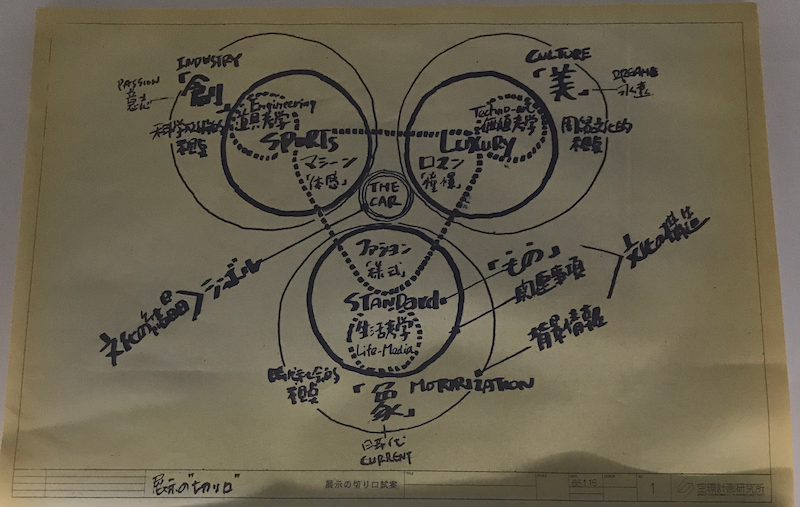 INDUSTRY
「創」
PASSION
意志
科学技術的
視点
Engineering
道具考学
SPORTS
マシーン
「体感」
CULTURE
「美」
DREAMS
永遠
視点
Techno-art
価値考学
LUXURY
ロマン
「憧憬」
THE
CAR
ファッション
「様式」
STANDard
生活考学
Life-Media
「象」
MOTORIZATION
時代
CURRENT
視点
文化の結晶
シンボル
「もの」
関連事項
背景情報
文化の構造
展示の"切り口"
展示の切り口試案
1